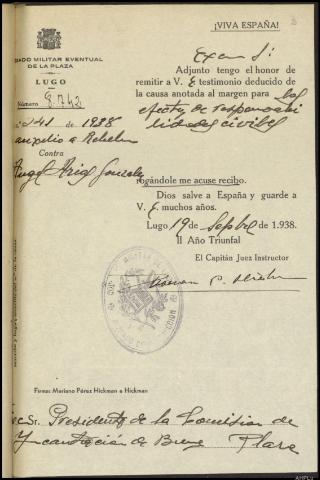 ¡VIVA ESPAÑA!
GADO MILITAR EVENTUAL
DE LA PLAZA
LUGO
Número 8.742
241 de 1938
auxilio a Rebelion
Contra
Angel Arias Gonzalez
Excmo Sr:
Adjunto tengo el honor de
remitir a V. E testimonio deducido de
la causa anotada al margen para los
efectos de responsabi
lidades civiles
rogándole me acuse recibo.
Dios salve a España y guarde a
V. E muchos años.
Lugo 19 de Septbre de 1.938.
II Año Triunfal
El Capitán Juez Instructor
Firma: Mariano Pérez Hickman e Hickman
Presidente de la Comision de
Incautación de Bienes Plaza